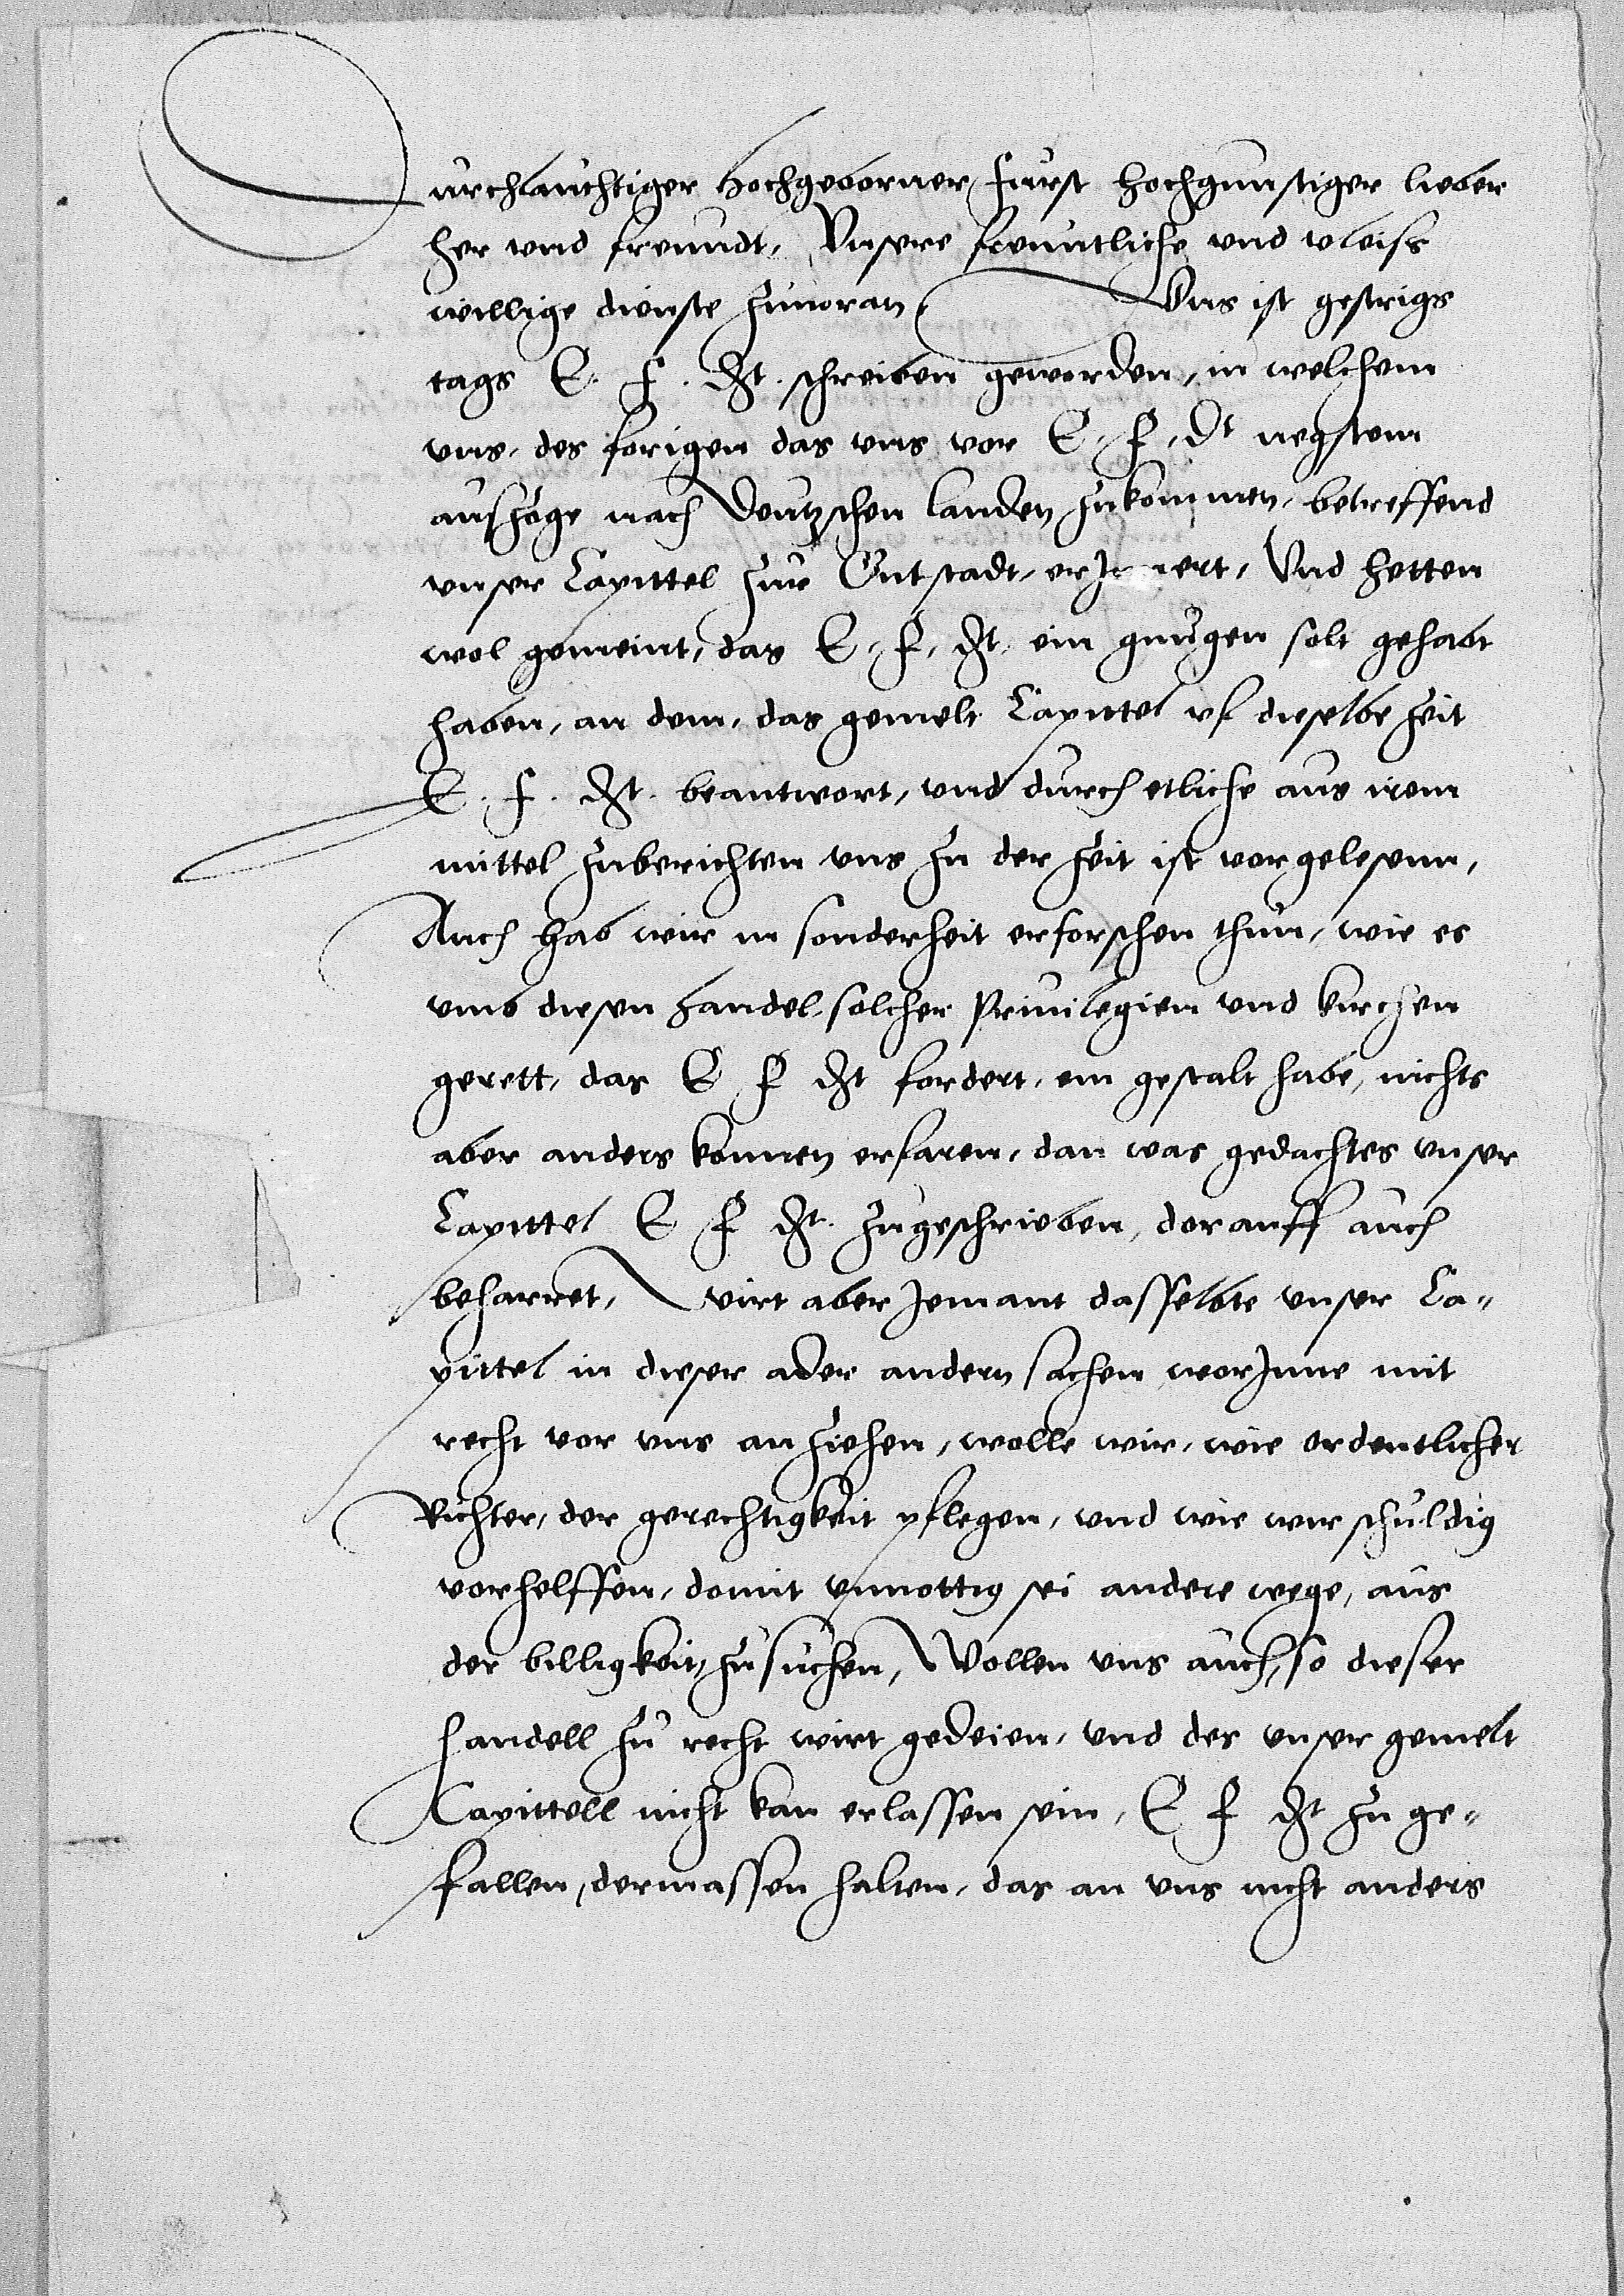 Durchlauchtiger hochgeborner furst hochgunstiger lieber
her vnd freundt, Vnsere freuntliche vnd vleiss
willige dienste zuuoran, Vns ist gestrigs
tags E. f. dt. schreiben geworden, in welchem
vns, des forigen das vns vor E. f. dt negstem
auszoge nach Deutzschen landen zukommen, betreffend
vnser Capittel zur Gutstadt, erJnnert, Vnd hetten
wol gemeint, das E. f. dt. ein gnugen solt gehabt
haben, an dem, das gemelt Capittel vf dieselbe zeit
E. f. dt. beantwort, vnd durch etliche aus irem
mittel zuberichten vns zu der zeit ist vorgelesenn,
Auch hab wir in sonderheit erforschen thun, wie es
vmb diesen handel solcher Priuilegien vnd kirchen
gerett, das E f dt fordert, ein gestalt habe, nichts
aber anders konnen erfaren, dan was gedachtes vnser
Capittel E f dt. zugeschrieben, dorauff auch
beharret, Wirt aber Jemant dasselbte vnser Ca-
pittel in dieser ader andern sachen worJnne mit
recht vor vns anziehen, wolle wir, wie ordentlicher
Richter, der gerechtigkeit pflegen, vnd wie wir schuldig
vorhelffen, domit vnnottig sei andere wege, aus
der billigkeit, zusuchen, Wollen vns auch, so dieser
handell zu recht wirt gedeien, vnd des vnser gemelt
Capittell nicht kan erlassen sein, E f dt zu ge-
fallen, dermassen halten, das an vns nicht anders